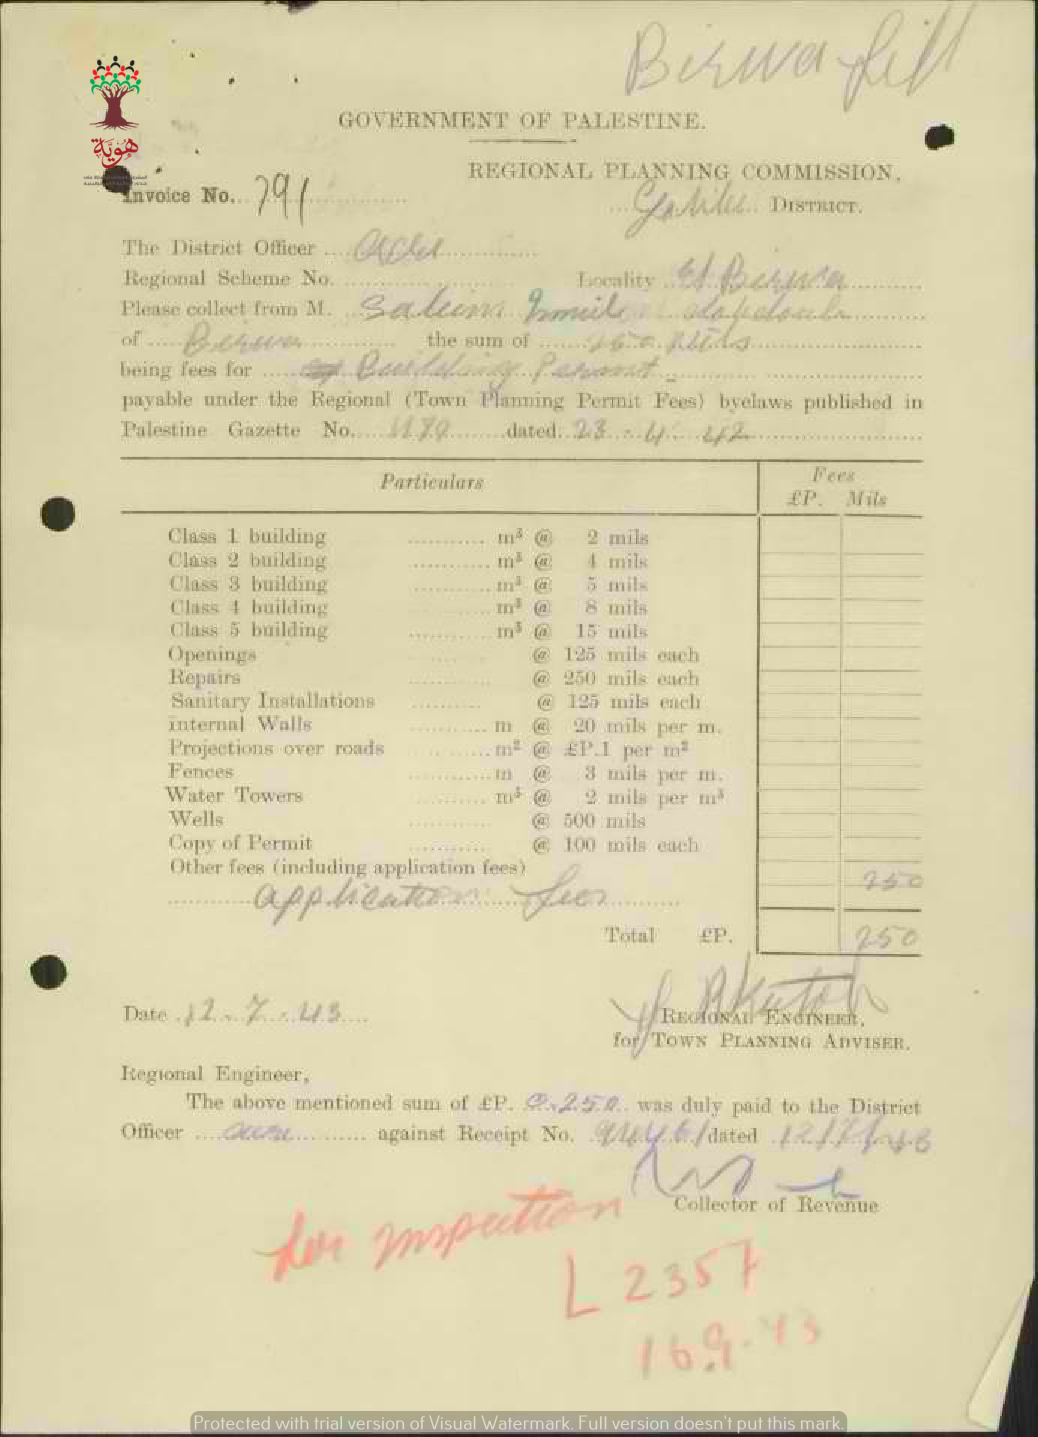 Birwa
هَوِيّة
GOVERNMENT OF PALESTINE.
REGIONAL PLANNING COMMISSION,
Invoice No. 791
Galilee DISTRICT.
The District Officer Acre
Regional Scheme No.
Locality El Birwa
Please collect from M. Salim
of Birwa the sum of 250 Mils
being fees for Building Permit
payable under the Regional (Town Planning Permit Fees) byelaws published in
Palestine Gazette No. dated 23 - 4 - 42
Particulars Fees
£P. Mils
Class 1 building m³ @ 2 mils
Class 2 building m³ @ 4 mils
Class 3 building m³ @ 5 mils
Class 4 building m³ @ 8 mils
Class 5 building m³ @ 15 mils
Openings @ 125 mils each
Repairs @ 250 mils each
Sanitary Installations @ 125 mils each
Internal Walls m @ 20 mils per m.
Projections over roads m² @ £P.1 per m²
Fences m @ 3 mils per m.
Water Towers m³ @ 2 mils per m³
Wells @ 500 mils
Copy of Permit @ 100 mils each
Other fees (including application fees) 250
application fees
Total £P. 250
Date 12 - 7 - 43
REGIONAL ENGINEER,
for TOWN PLANNING ADVISER.
Regional Engineer,
The above mentioned sum of £P. 0.250 was duly paid to the District
Officer Acre against Receipt No. dated 12/7/43
Collector of Revenue
for inspection
L 2357
16.9.43
Protected with trial version of Visual Watermark. Full version doesn't put this mark.